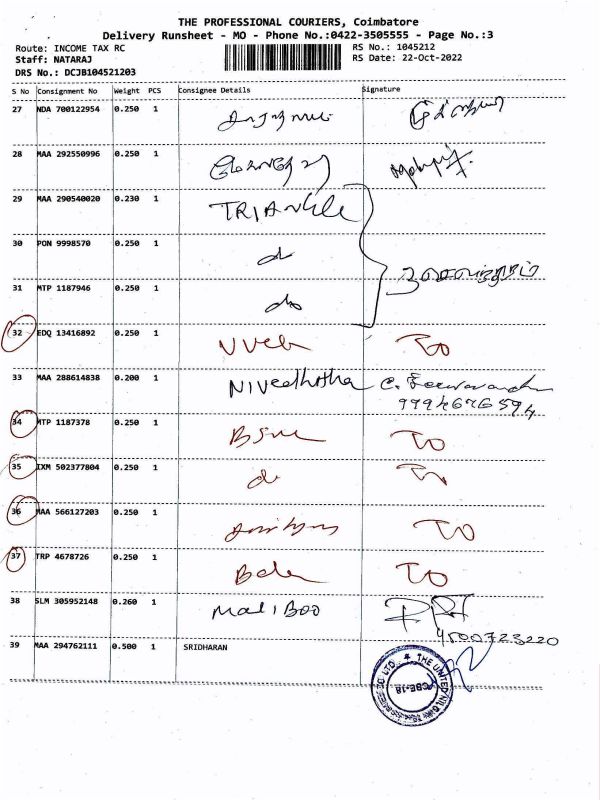 THE PROFESSIONAL COURIERS, Coimbatore
Delivery Runsheet - MO - Phone No.:0422-3505555 - Page No.:3
Route: INCOME TAX RC
RS No.: 1045212
Staff: NATARAJ
RS Date: 22-Oct-2022
DRS No.: DCJB104521203
S No Consignment No Weight PCS Consignee Details Signature
27 NDA 700122954 0.250 1
28 MAA 292550996 0.250 1
29 MAA 290540020 0.230 1 TRIANGLE
30 PON 9998570 0.250 1 do
31 MTP 1187946 0.250 1 do
32 EDQ 13416892 0.250 1 TO
33 MAA 288614838 0.200 1 Nivedhitha
9994676594
34 MTP 1187378 0.250 1 TO
35 IXM 502377804 0.250 1 do TO
36 MAA 566127203 0.250 1 TO
37 TRP 4678726 0.250 1 TO
38 SLM 305952148 0.260 1 MaliBoo
9500723220
39 MAA 294762111 0.500 1 SRIDHARAN
CBE-18